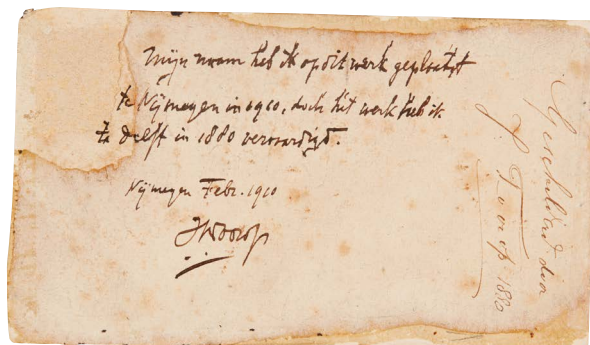 Mijn naam heb ik op dit werk geplaatst
te Nijmegen in 1910, doch het werk heb ik
te Delft in 1880 vervaardigd.
Nijmegen Febr. 1910
JThToorop
Geschilderd door
J. Toorop 1880